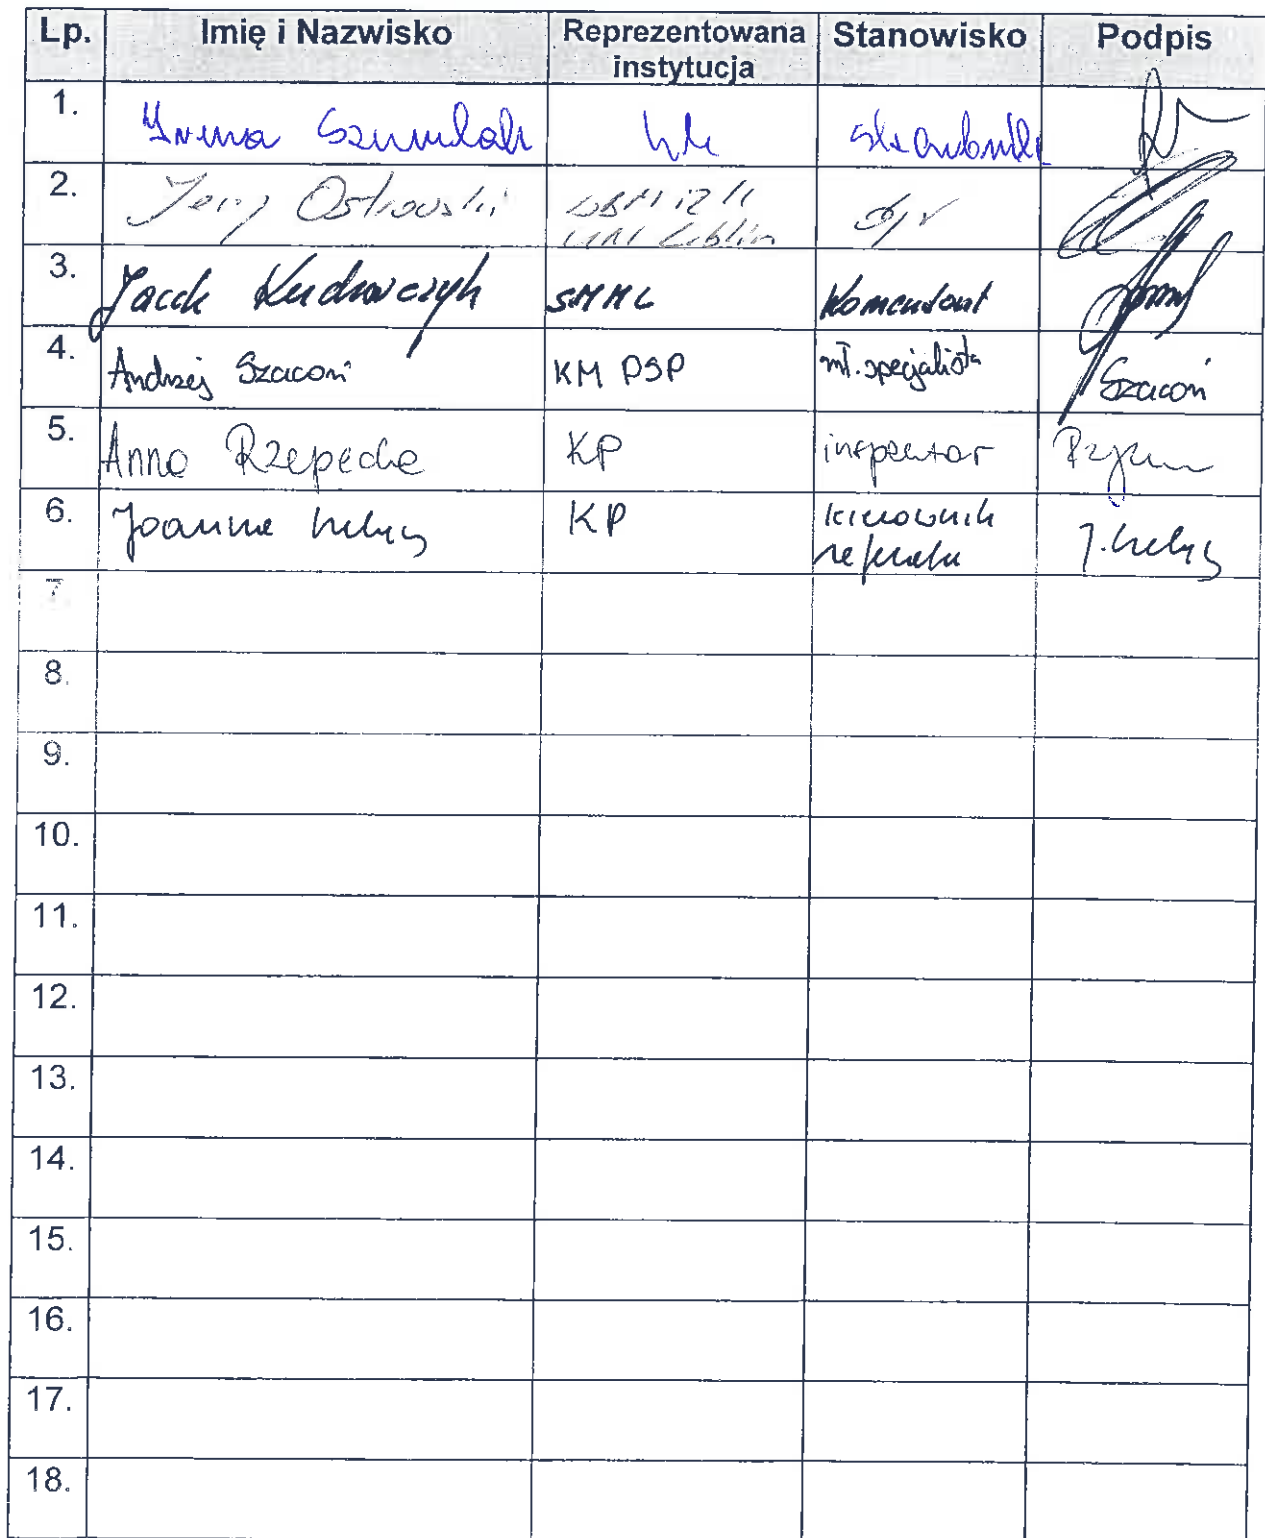 Lp. Imię i Nazwisko Reprezentowana instytucja Stanowisko Podpis
1. Irena Szumlak skarbnik
2. Jerzy Ostrowski Lublin dyr
3. Jacek Kucharczyk SMML Komendant
4. Andrzej Szacoń KM PSP mł. specjalista Szacoń
5. Anna Rzepecka KP inspektor
6. Joanna KP kierownik referatu
7.
8.
9.
10.
11.
12.
13.
14.
15.
16.
17.
18.